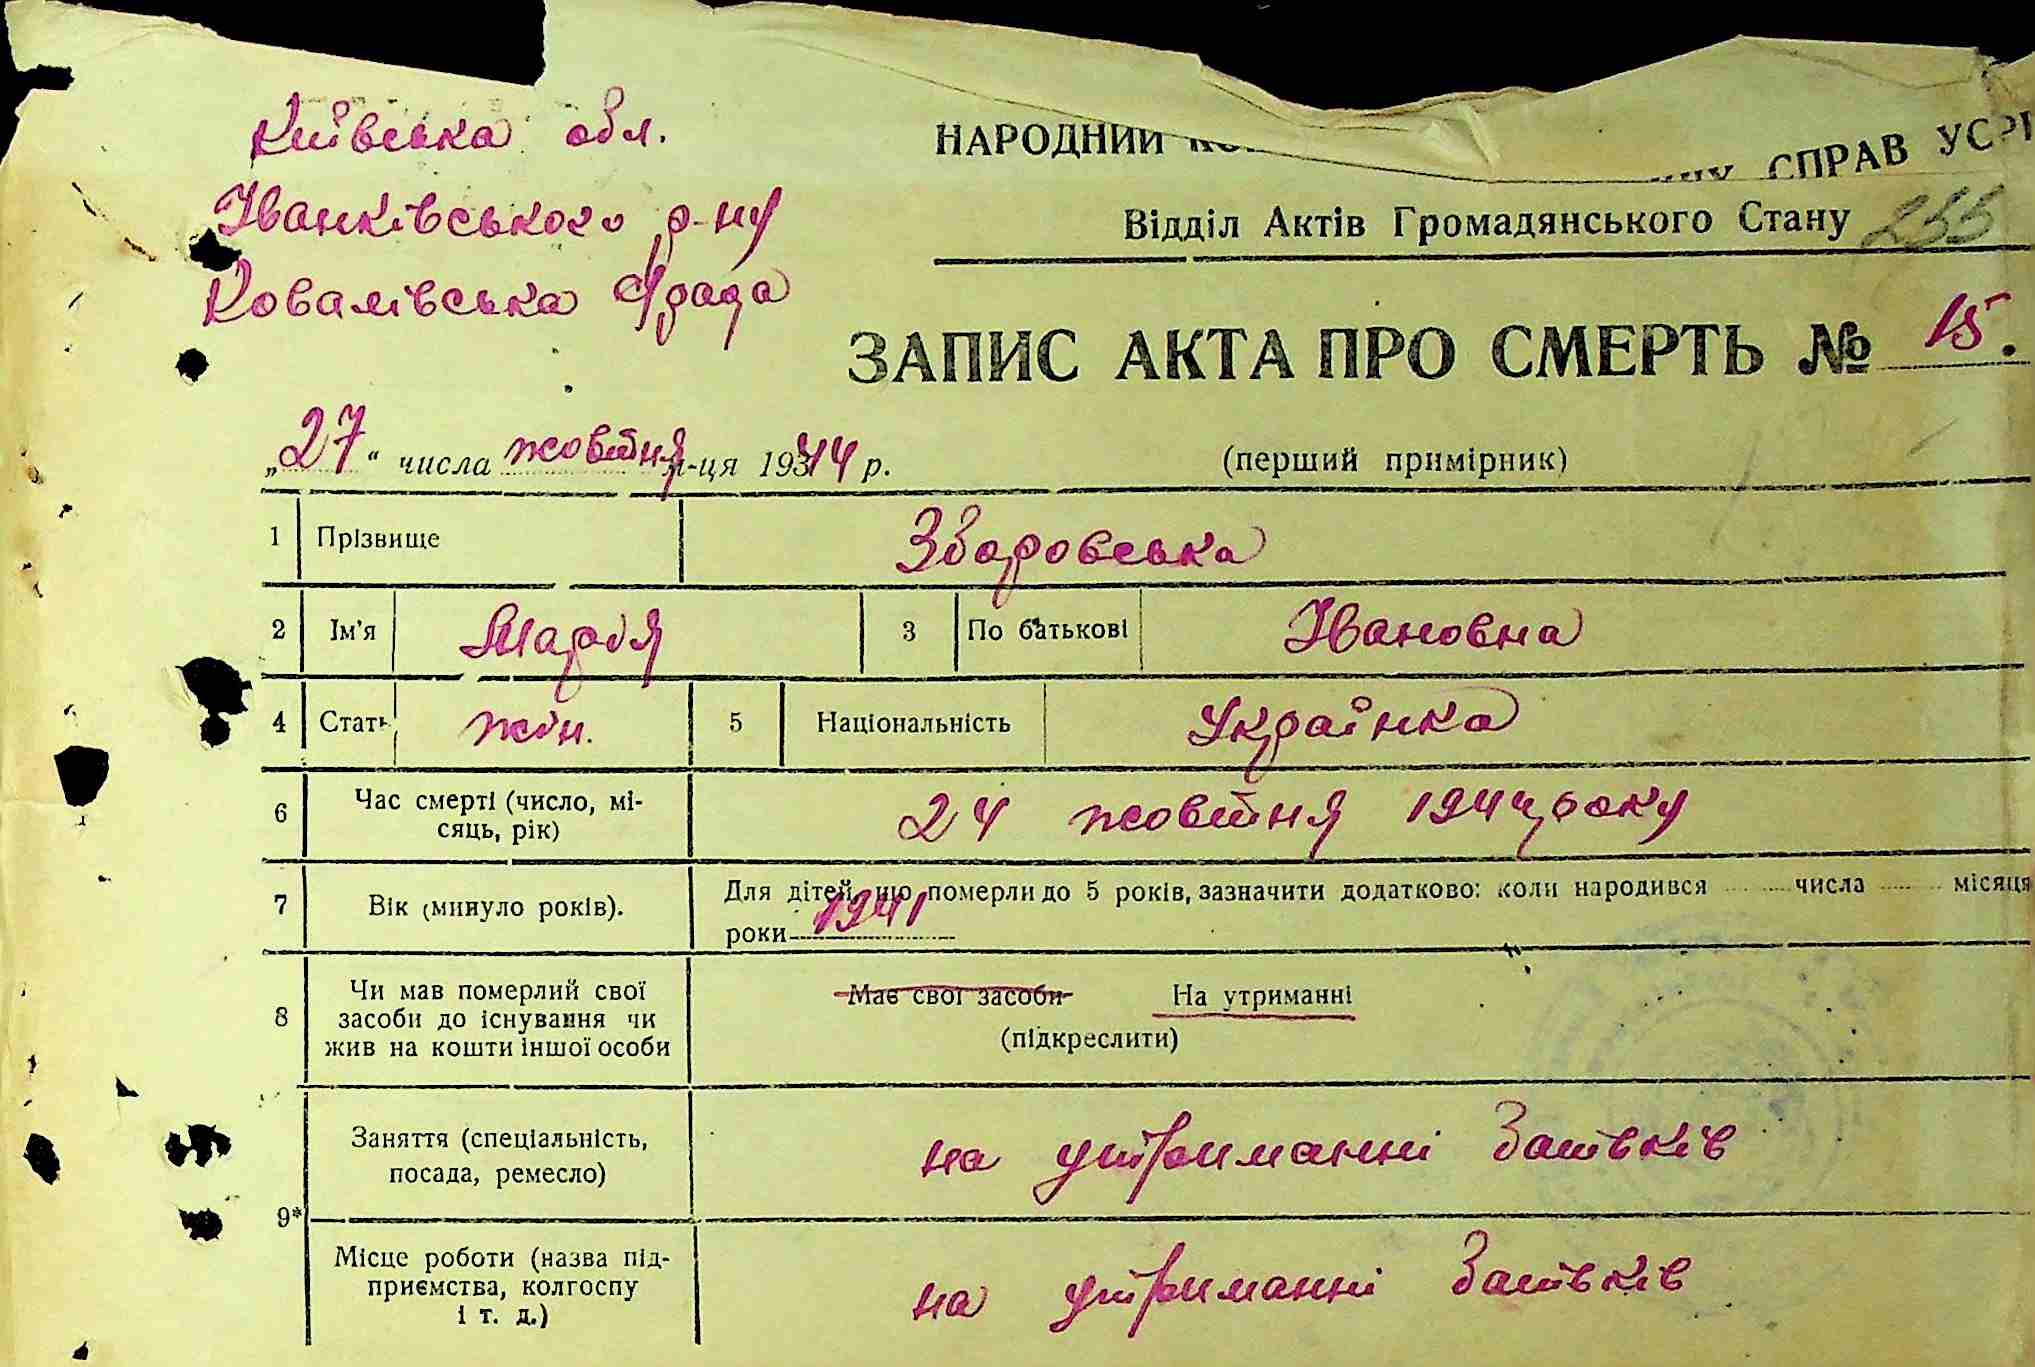 Київська обл.
Іванківського р-ну
Ковалівська с/рада
НАРОДНИЙ СПРАВ УСРР
Відділ Актів Громадянського Стану 255
ЗАПИС АКТА ПРО СМЕРТЬ № 15.
„27“ числа жовтня м-ця 1944 р.
(перший примірник)
1 Прізвище Зборовська
2 Ім'я Марія 3 По батькові Івановна
4 Стать жін. 5 Національність Українка
6 Час смерті (число, мі-
сяць, рік) 24 жовтня 1944 року
7 Вік (минуло років). Для дітей, що померли до 5 років, зазначити додатково: коли народився числа місяця
роки 1941
8 Чи мав померлий свої
засоби до існування чи
жив на кошти іншої особи
Має свої засоби На утриманні
(підкреслити)
9* Заняття (спеціальність,
посада, ремесло) на утриманні Батьків
Місце роботи (назва під-
приємства, колгоспу
і т. д.) на утриманні Батьків